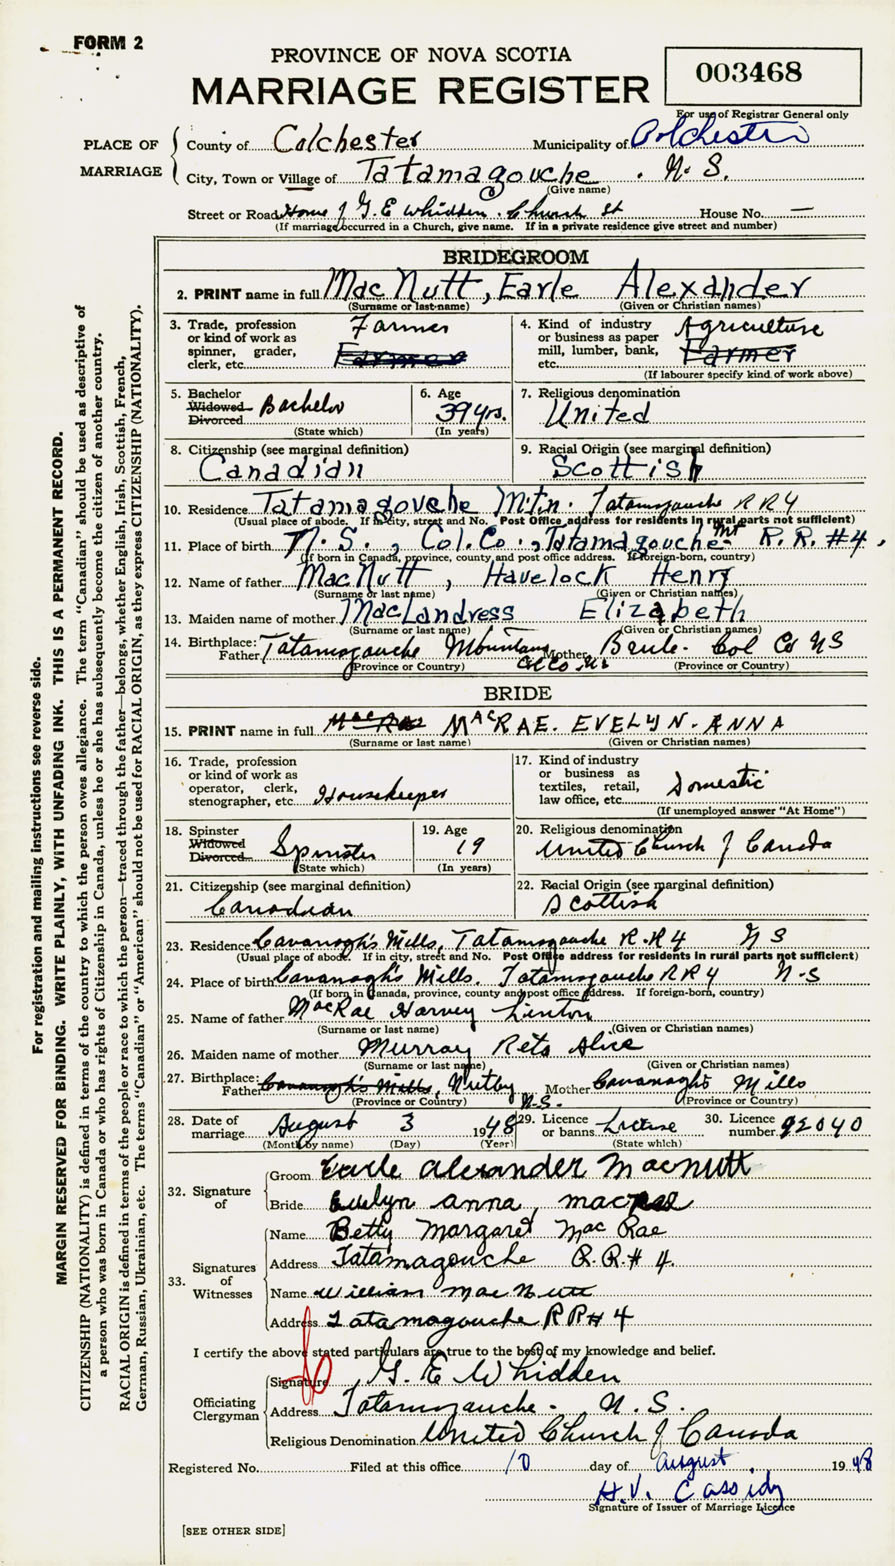 FORM 2
PROVINCE OF NOVA SCOTIA
MARRIAGE REGISTER
003468
For use of Registrar General only
PLACE OF MARRIAGE
County of Colchester Municipality of Colchester
City, Town or Village of Tatamagouche . N. S.
(Give name)
Street or Road Home of G. E Whidden . Church St House No. —
(If marriage occurred in a Church, give name. If in a private residence give street and number)
BRIDEGROOM
2. PRINT name in full Mac Nutt, Earle Alexander
(Surname or last name) (Given or Christian names)
3. Trade, profession or kind of work as spinner, grader, clerk, etc. Farmer Farmer
4. Kind of industry or business as paper mill, lumber, bank, etc. Agriculture Farmer
(If labourer specify kind of work above)
5. Bachelor Widowed Divorced Bachelor
(State which)
6. Age 39 yrs.
(In years)
7. Religious denomination United
8. Citizenship (see marginal definition) Canadian
9. Racial Origin (see marginal definition) Scottish
10. Residence Tatamagouche Mtn. Tatamagouche RR4
(Usual place of abode. If in city, street and No. Post Office address for residents in rural parts not sufficient)
11. Place of birth N. S., Col. Co., Tatamagouche Mt R. R. #4,
(If born in Canada, province, county and post office address. If foreign-born, country)
12. Name of father MacNutt, Havelock Henry
(Surname or last name) (Given or Christian names)
13. Maiden name of mother MacLandress Elizabeth
(Surname or last name) (Given or Christian names)
14. Birthplace: Father Tatamagouche Mountain Col Co NS Mother Brule. Col Co NS
(Province or Country) (Province or Country)
BRIDE
15. PRINT name in full MacRae MacRAE. EVELYN. ANNA
(Surname or last name) (Given or Christian names)
16. Trade, profession or kind of work as operator, clerk, stenographer, etc. Housekeeper
17. Kind of industry or business as textiles, retail, law office, etc. Domestic
(If unemployed answer "At Home")
18. Spinster Widowed Divorced Spinster
(State which)
19. Age 19
(In years)
20. Religious denomination United Church of Canada
21. Citizenship (see marginal definition) Canadian
22. Racial Origin (see marginal definition) Scottish
23. Residence Cavanagh's Mills, Tatamagouche R.R 4 N S
(Usual place of abode. If in city, street and No. Post Office address for residents in rural parts not sufficient)
24. Place of birth Cavanagh's Mills. Tatamagouche RR4 N-S
(If born in Canada, province, county and post office address. If foreign-born, country)
25. Name of father MacRae Harvey Linton
(Surname or last name) (Given or Christian names)
26. Maiden name of mother Murray Reta Alice
(Surname or last name) (Given or Christian names)
27. Birthplace: Father Cavanagh's Mills, Nutby N.S. Mother Cavanagh's Mills
(Province or Country) (Province or Country)
28. Date of marriage August 3 1948
(Month by name) (Day) (Year)
29. Licence or banns License
(State which)
30. Licence number 92040
32. Signature of
Groom Earle Alexander Macnutt
Bride Evelyn anna, macrae
33. Signatures of Witnesses
Name Betty Margaret Mac Rae
Address Tatamagouche R.R.# 4.
Name William MacNutt
Address Tatamagouche RR#4
I certify the above stated particulars are true to the best of my knowledge and belief.
Officiating Clergyman
Signature G. E Whidden
Address Tatamagouche. N. S.
Religious Denomination United Church of Canada
Registered No. Filed at this office 10 day of August, 1948
H.V. Cassidy
Signature of Issuer of Marriage Licence
[SEE OTHER SIDE]
For registration and mailing instructions see reverse side.
MARGIN RESERVED FOR BINDING. WRITE PLAINLY, WITH UNFADING INK. THIS IS A PERMANENT RECORD.
CITIZENSHIP (NATIONALITY) is defined in terms of the country to which the person owes allegiance. The term "Canadian" should be used as descriptive of
a person who was born in Canada or who has rights of Citizenship in Canada, unless he or she has subsequently become the citizen of another country.
RACIAL ORIGIN is defined in terms of the people or race to which the person—traced through the father—belongs, whether English, Irish, Scottish, French,
German, Russian, Ukrainian, etc. The terms "Canadian" or "American" should not be used for RACIAL ORIGIN, as they express CITIZENSHIP (NATIONALITY).